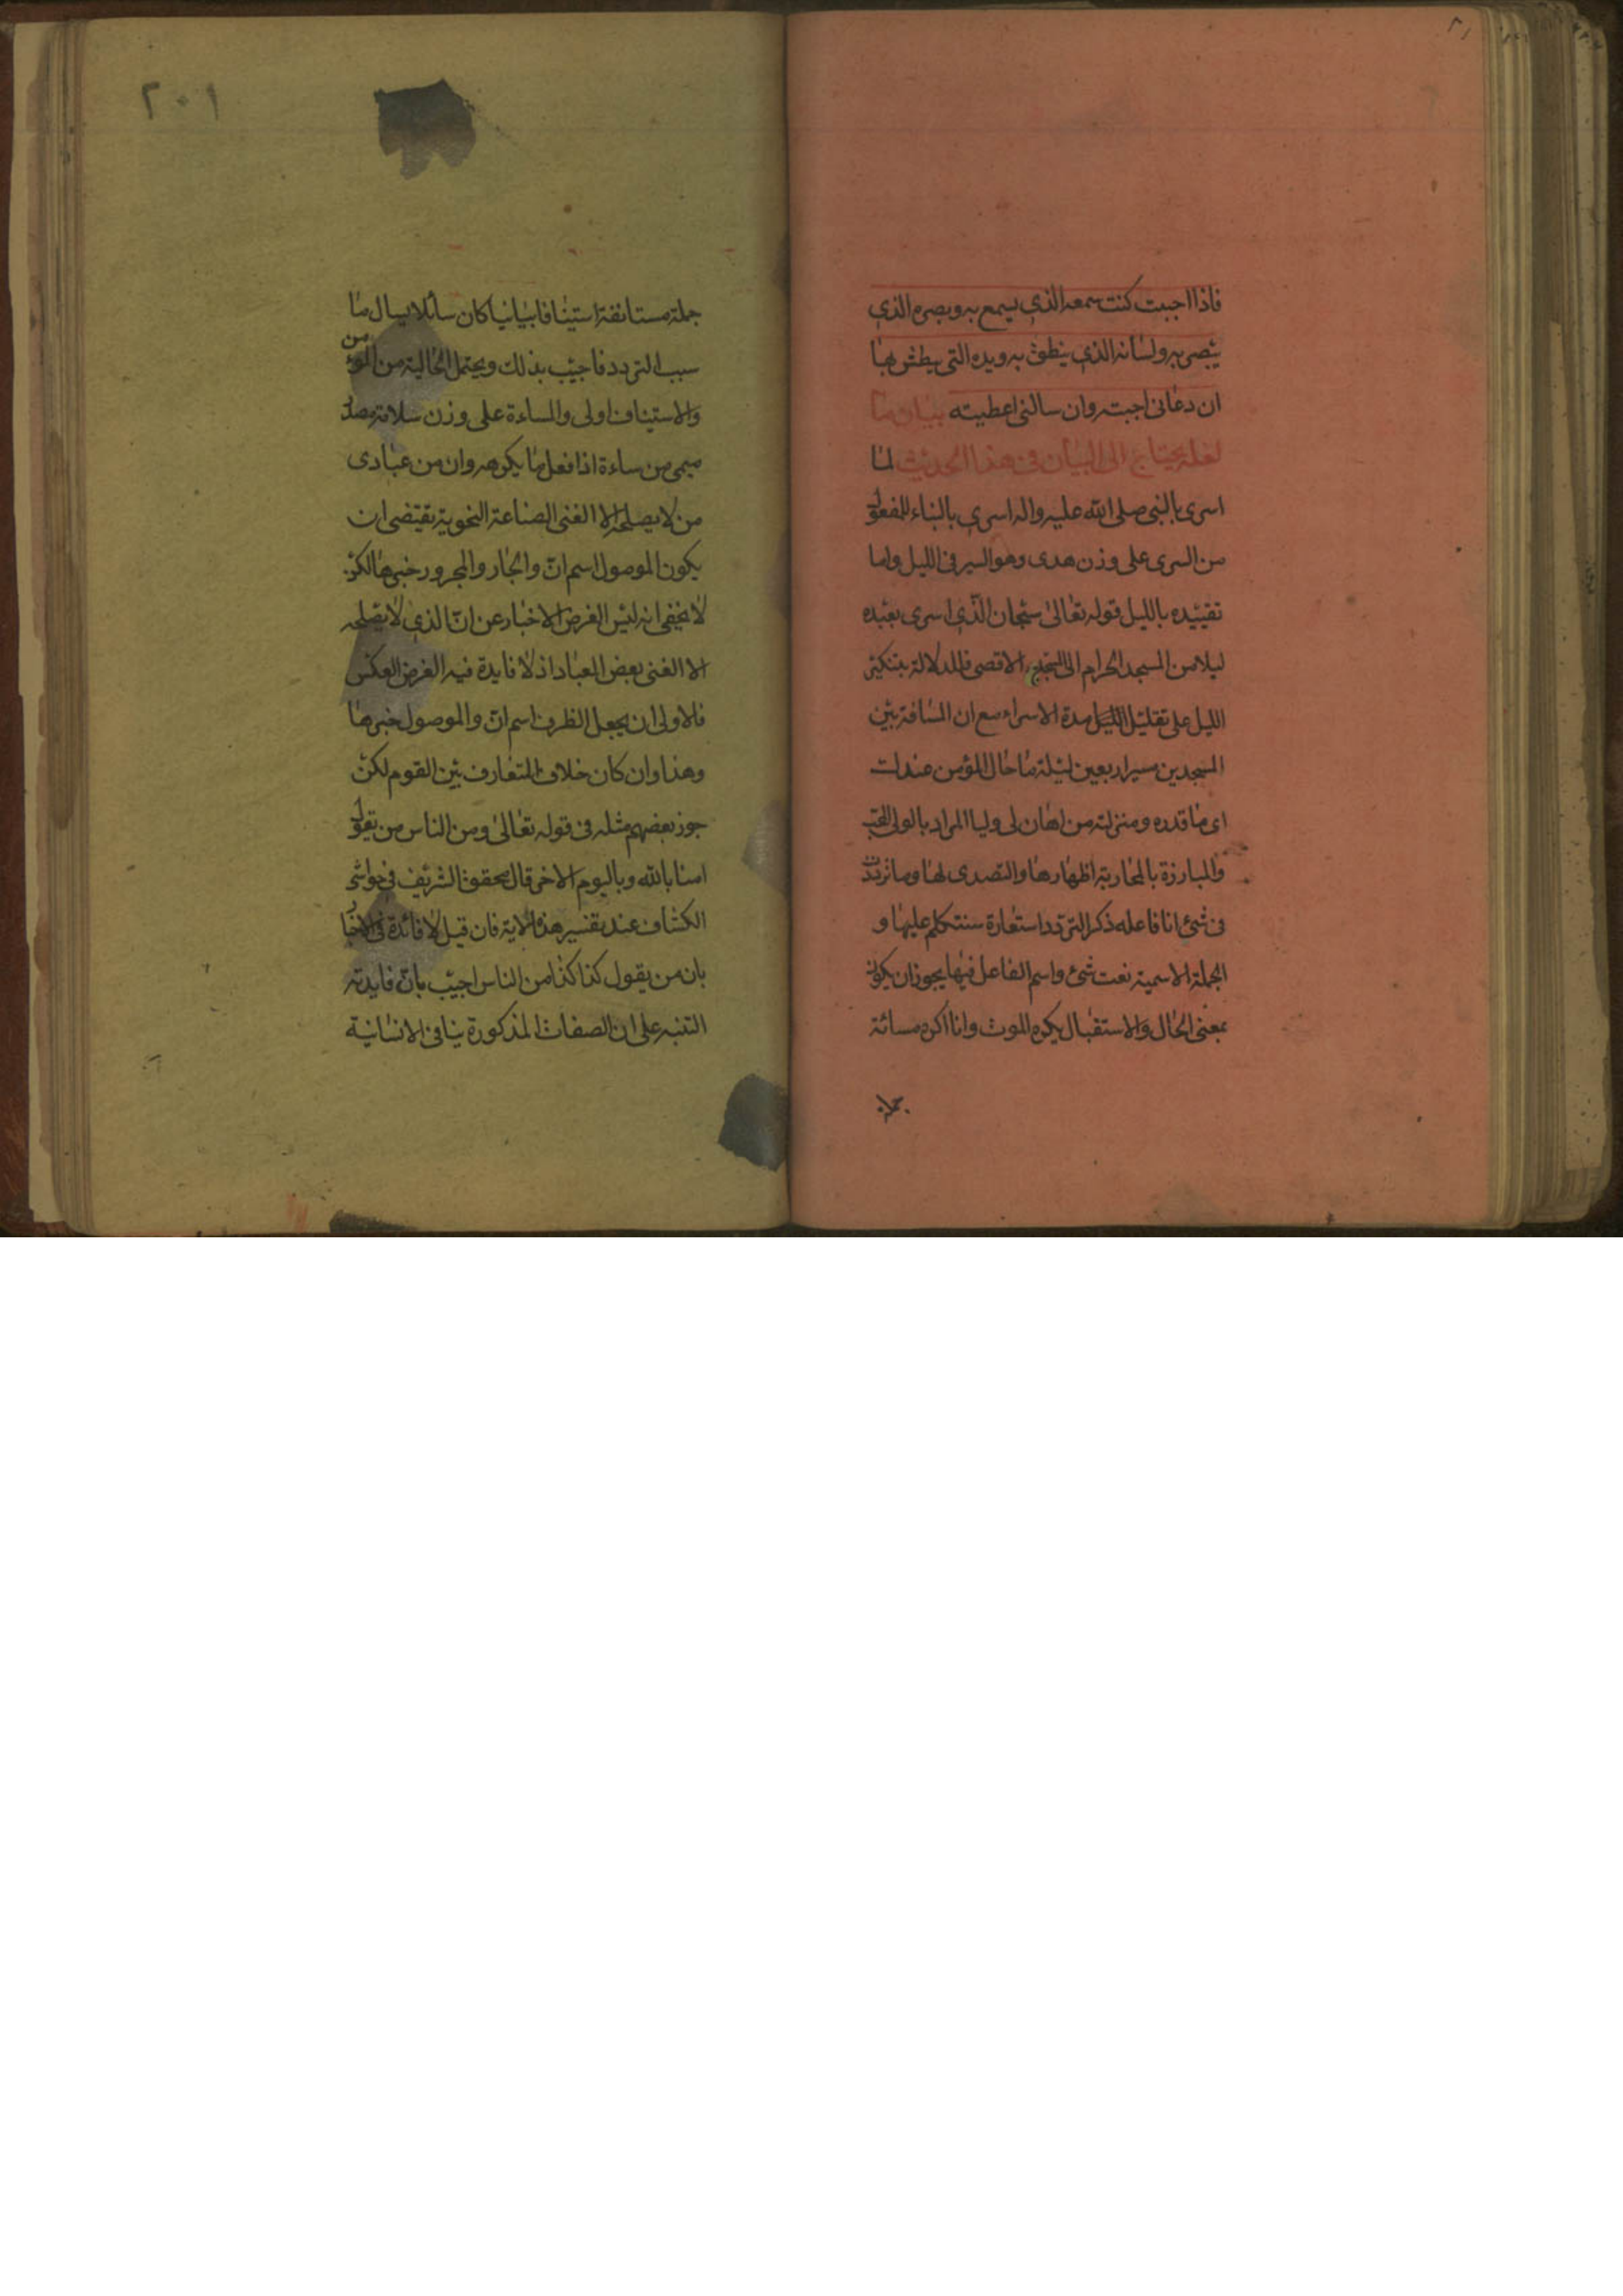 ٢١
فاذا احببت كنت سمعه الذي يسمع به وبصره الذي
يبصر به ولسانه الذي ينطق به ويده التي يبطش بها
ان دعانى اجبته وان سالنى اعطيته بيان ما
لعله يحتاج الى البيان فى هذا الحديث لما
اسرى بالنبى صلى الله عليه واله اسرى بالبناء للمفعول
من السرى على وزن هدى وهو السير فى الليل واما
تقييده بالليل قوله تعالى سبحان الذي اسرى بعبده
ليلا من المسجد الحرام الى المسجد الاقصى فللدلالة بتنكير
الليل على تقليل مدة الاسراء مع ان المسافة بين
المسجدين مسير اربعين ليلة ما حال المؤمن عندك
اى ما قدره ومنزلته من اهان لى وليا المراد بالولى المحب
والمبارزة بالمحاربة اظهارها والتصدى لها وما ترددت
فى شئ انا فاعله ذكر التردد استعارة سنتكلم عليها و
الجملة الاسمية نعت شئ واسم الفاعل فيها يجوز ان يكون
بمعنى الحال والاستقبال يكره الموت وانا اكره مسائة
جملة
٢٠١
جملة مستانفة استينافا بيانيا كان سائلا يسال ما
سبب التردد فاجيب بذلك ويحتمل الحالية من المؤمن
والاستيناف اولى والمساءة على وزن سلامة مصدر
ميمى من ساءه اذا فعل ما يكرهه وان من عبادى
من لا يصلحه الا الغنى الصناعة النحوية تقتضى ان
يكون الموصول اسم ان والجار والمجرور خبرها لكن
لا يخفى انه ليس الغرض الاخبار عن ان الذي لا يصلحه
الا الغنى بعض العباد اذ لا فايدة فيه الغرض العكس
فالاولى ان يجعل الظرف اسم ان والموصول خبرها
وهذا وان كان خلاف المتعارف بين القوم لكن
جوز بعضهم مثله فى قوله تعالى ومن الناس من يقول
امنا بالله وباليوم الاخر قال المحقق الشريف فى حواشى
الكشاف عند تفسير هذه الاية فان قيل لا فائدة فى الاخبار
بان من يقول كذا كذا من الناس اجيب بان فايدته
التنبه على ان الصفات المذكورة ينافى الانسانية